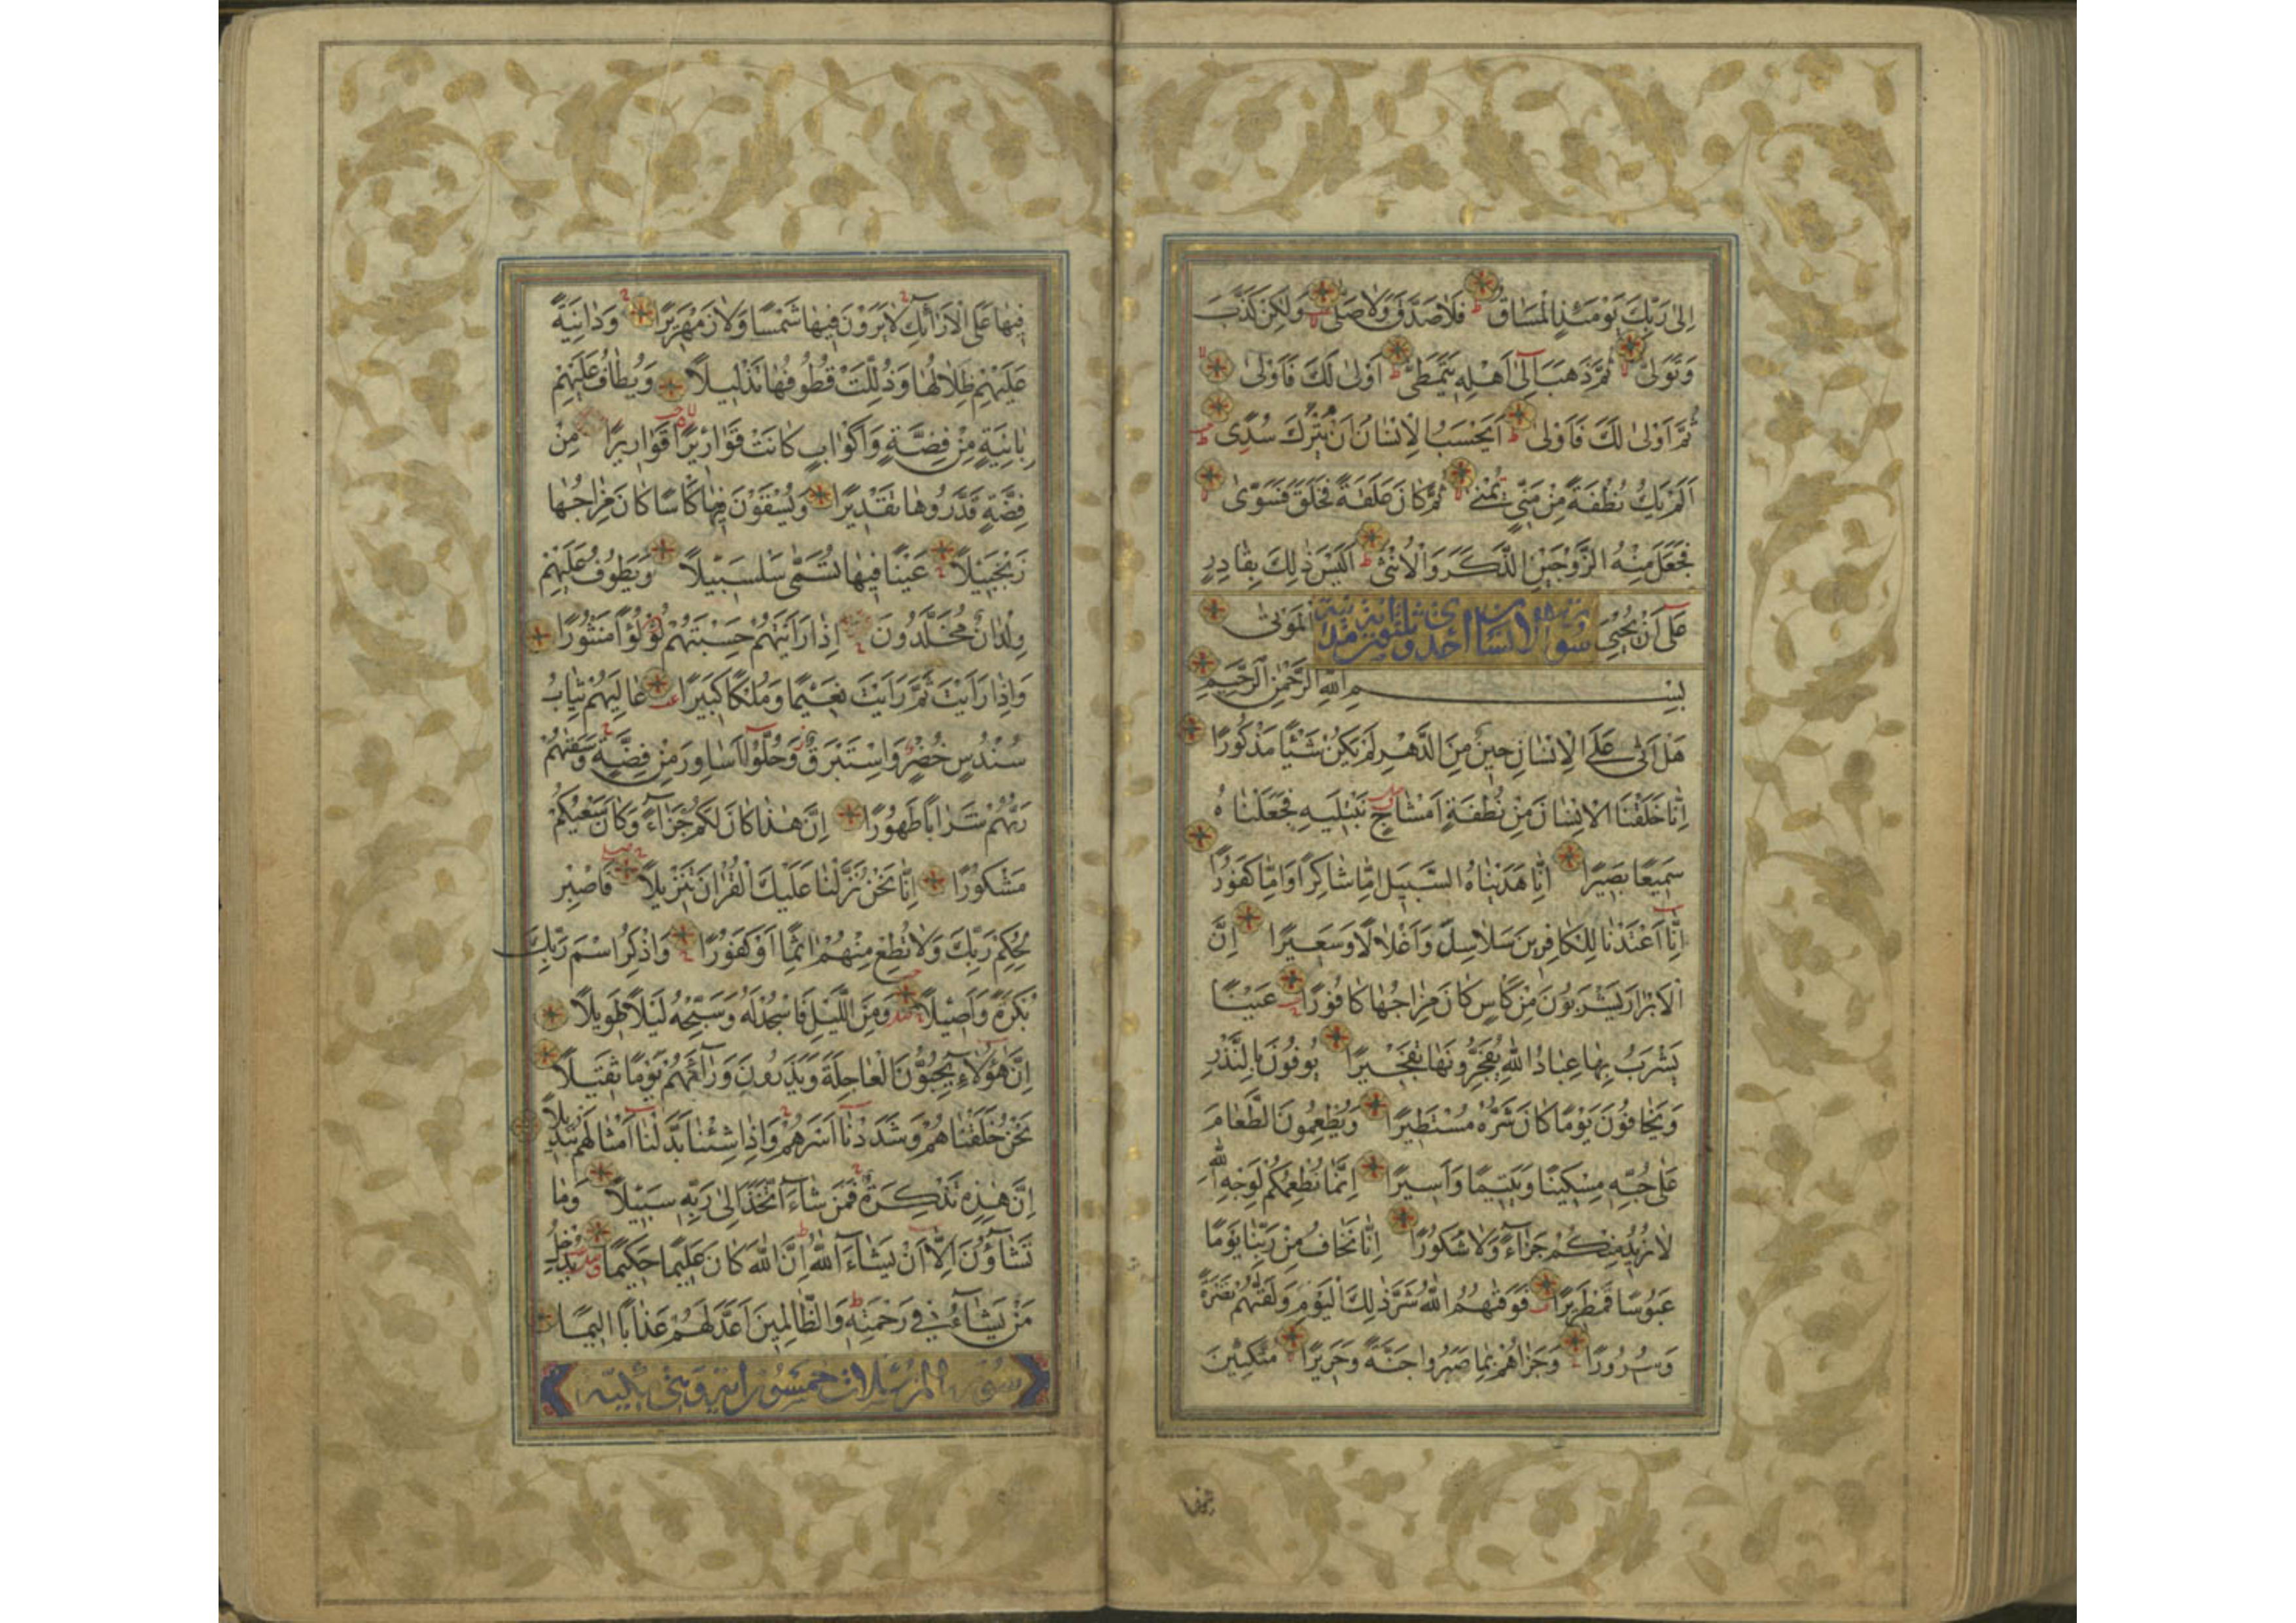 اِلىٰ رَبِّكَ يَوْمَئِذٍ الْمَسَاقُ فَلَا صَدَّقَ وَلَا صَلّىٰ وَلٰكِنْ كَذَّبَ
وَتَوَلّىٰ ثُمَّ ذَهَبَ اِلىٰٓ اَهْلِهٖ يَتَمَطّىٰ اَوْلىٰ لَكَ فَاَوْلىٰ
ثُمَّ اَوْلىٰ لَكَ فَاَوْلىٰ اَيَحْسَبُ الْاِنْسَانُ اَنْ يُتْرَكَ سُدًى
اَلَمْ يَكُ نُطْفَةً مِنْ مَنِيٍّ يُمْنىٰ ثُمَّ كَانَ عَلَقَةً فَخَلَقَ فَسَوّىٰ
فَجَعَلَ مِنْهُ الزَّوْجَيْنِ الذَّكَرَ وَالْاُنْثىٰ اَلَيْسَ ذٰلِكَ بِقَادِرٍ
عَلىٰٓ اَنْ يُحْيِيَ الْمَوْتىٰ
سورة الانسان احدى وثلثون اية مدنية
بِسْمِ اللّٰهِ الرَّحْمٰنِ الرَّحِيمِ
هَلْ اَتىٰ عَلَى الْاِنْسَانِ حِينٌ مِنَ الدَّهْرِ لَمْ يَكُنْ شَيْئًا مَذْكُورًا
اِنَّا خَلَقْنَا الْاِنْسَانَ مِنْ نُطْفَةٍ اَمْشَاجٍ نَبْتَلِيهِ فَجَعَلْنَاهُ
سَمِيعًا بَصِيرًا اِنَّا هَدَيْنَاهُ السَّبِيلَ اِمَّا شَاكِرًا وَاِمَّا كَفُورًا
اِنَّٓا اَعْتَدْنَا لِلْكَافِرِينَ سَلَاسِلَ وَاَغْلَالًا وَسَعِيرًا اِنَّ
الْاَبْرَارَ يَشْرَبُونَ مِنْ كَاْسٍ كَانَ مِزَاجُهَا كَافُورًا عَيْنًا
يَشْرَبُ بِهَا عِبَادُ اللّٰهِ يُفَجِّرُونَهَا تَفْجِيرًا يُوفُونَ بِالنَّذْرِ
وَيَخَافُونَ يَوْمًا كَانَ شَرُّهُ مُسْتَطِيرًا وَيُطْعِمُونَ الطَّعَامَ
عَلىٰ حُبِّهٖ مِسْكِينًا وَيَتِيمًا وَاَسِيرًا اِنَّمَا نُطْعِمُكُمْ لِوَجْهِ اللّٰهِ
لَا نُرِيدُ مِنْكُمْ جَزَآءً وَلَا شُكُورًا اِنَّا نَخَافُ مِنْ رَبِّنَا يَوْمًا
عَبُوسًا قَمْطَرِيرًا فَوَقٰهُمُ اللّٰهُ شَرَّ ذٰلِكَ الْيَوْمِ وَلَقّٰهُمْ نَضْرَةً
وَسُرُورًا وَجَزٰهُمْ بِمَا صَبَرُوا جَنَّةً وَحَرِيرًا مُتَّكِئِينَ
فِيهَا عَلَى الْاَرَآئِكِ لَا يَرَوْنَ فِيهَا شَمْسًا وَلَا زَمْهَرِيرًا وَدَانِيَةً
عَلَيْهِمْ ظِلَالُهَا وَذُلِّلَتْ قُطُوفُهَا تَذْلِيلًا وَيُطَافُ عَلَيْهِمْ
بِاٰنِيَةٍ مِنْ فِضَّةٍ وَاَكْوَابٍ كَانَتْ قَوَارِيرَا قَوَارِيرَا مِنْ
فِضَّةٍ قَدَّرُوهَا تَقْدِيرًا وَيُسْقَوْنَ فِيهَا كَاْسًا كَانَ مِزَاجُهَا
زَنْجَبِيلًا عَيْنًا فِيهَا تُسَمّىٰ سَلْسَبِيلًا وَيَطُوفُ عَلَيْهِمْ
وِلْدَانٌ مُخَلَّدُونَ اِذَا رَاَيْتَهُمْ حَسِبْتَهُمْ لُؤْلُؤًا مَنْثُورًا
وَاِذَا رَاَيْتَ ثَمَّ رَاَيْتَ نَعِيمًا وَمُلْكًا كَبِيرًا عَالِيَهُمْ ثِيَابُ
سُنْدُسٍ خُضْرٌ وَاِسْتَبْرَقٌ وَحُلُّوٓا اَسَاوِرَ مِنْ فِضَّةٍ وَسَقٰهُمْ
رَبُّهُمْ شَرَابًا طَهُورًا اِنَّ هٰذَا كَانَ لَكُمْ جَزَآءً وَكَانَ سَعْيُكُمْ
مَشْكُورًا اِنَّا نَحْنُ نَزَّلْنَا عَلَيْكَ الْقُرْاٰنَ تَنْزِيلًا فَاصْبِرْ
لِحُكْمِ رَبِّكَ وَلَا تُطِعْ مِنْهُمْ اٰثِمًا اَوْ كَفُورًا وَاذْكُرِ اسْمَ رَبِّكَ
بُكْرَةً وَاَصِيلًا وَمِنَ اللَّيْلِ فَاسْجُدْ لَهُ وَسَبِّحْهُ لَيْلًا طَوِيلًا
اِنَّ هٰٓؤُلَآءِ يُحِبُّونَ الْعَاجِلَةَ وَيَذَرُونَ وَرَآءَهُمْ يَوْمًا ثَقِيلًا
نَحْنُ خَلَقْنَاهُمْ وَشَدَدْنَٓا اَسْرَهُمْ وَاِذَا شِئْنَا بَدَّلْنَٓا اَمْثَالَهُمْ تَبْدِيلًا
اِنَّ هٰذِهٖ تَذْكِرَةٌ فَمَنْ شَآءَ اتَّخَذَ اِلىٰ رَبِّهٖ سَبِيلًا وَمَا
تَشَآؤُنَ اِلَّٓا اَنْ يَشَآءَ اللّٰهُ اِنَّ اللّٰهَ كَانَ عَلِيمًا حَكِيمًا يُدْخِلُ
مَنْ يَشَآءُ فِي رَحْمَتِهٖ وَالظَّالِمِينَ اَعَدَّ لَهُمْ عَذَابًا اَلِيمًا
سورة المرسلات خمسون اية وهى مكية